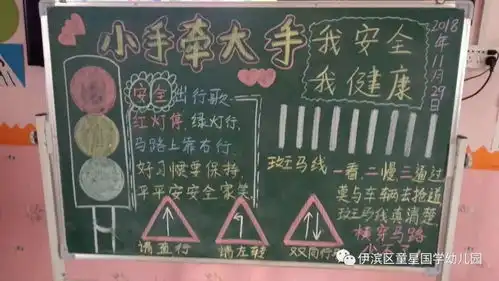 小手牵大手
我安全
我健康
2018年11月29日
安全出行歌
红灯停 绿灯行,
马路上靠右行,
好习惯要保持,
平平安安全家笑
斑马线 一看二慢三通过
莫与车辆去抢道
斑马线莫清楚
横穿马路
请直行
请左转
双向行
伊滨区童星国学幼儿园